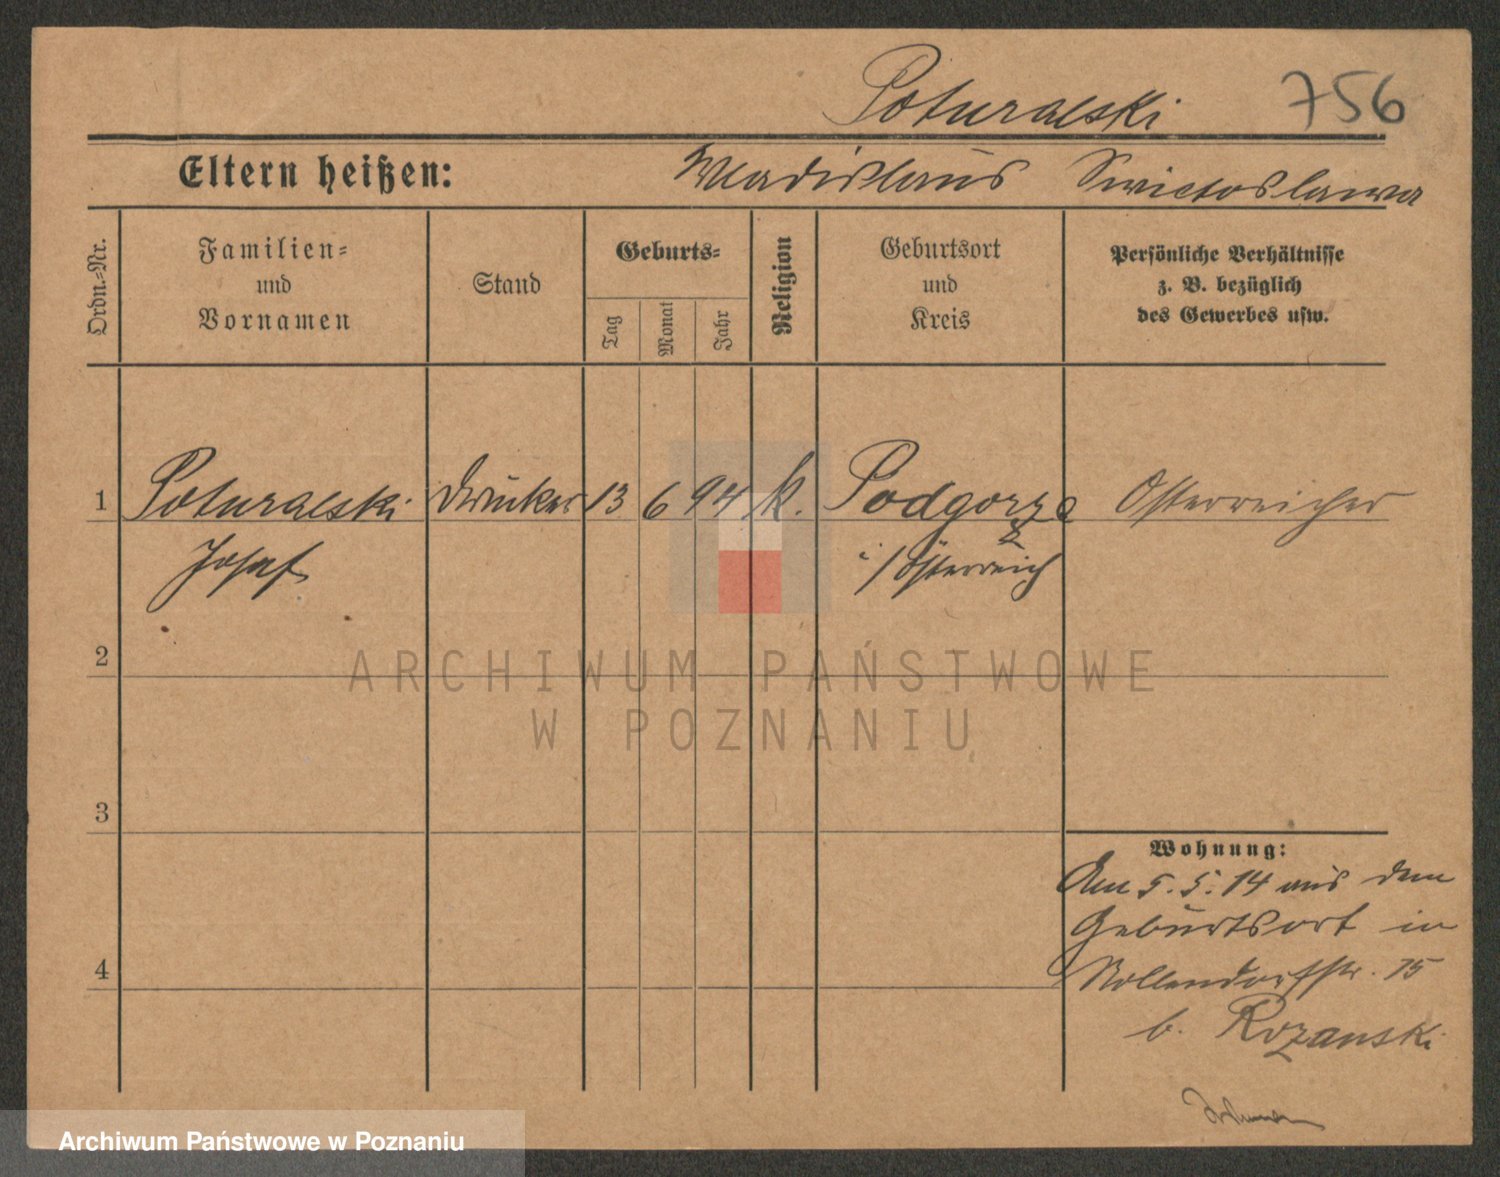 Poturalski 756
Eltern heißen: Wladislaus Swictoslawa
Ordn.-Nr.
Familien-
und
Vornamen
Stand
Geburts-
Tag
Monat
Jahr
Religion
Geburtsort
und
Kreis
Persönliche Verhältnisse
z. B. bezüglich
des Gewerbes usw.
1 Poturalski Drucker 13 6 94 k. Podgorze Österreicher
Josef i/Österreich
2
ARCHIWUM PAŃSTWOWE
W POZNANIU
3
Wohnung:
Am 5.5.14 aus dem
Geburtsort in
4
Nollendorfstr. 15
b. Rozanski
Archiwum Państwowe w Poznaniu